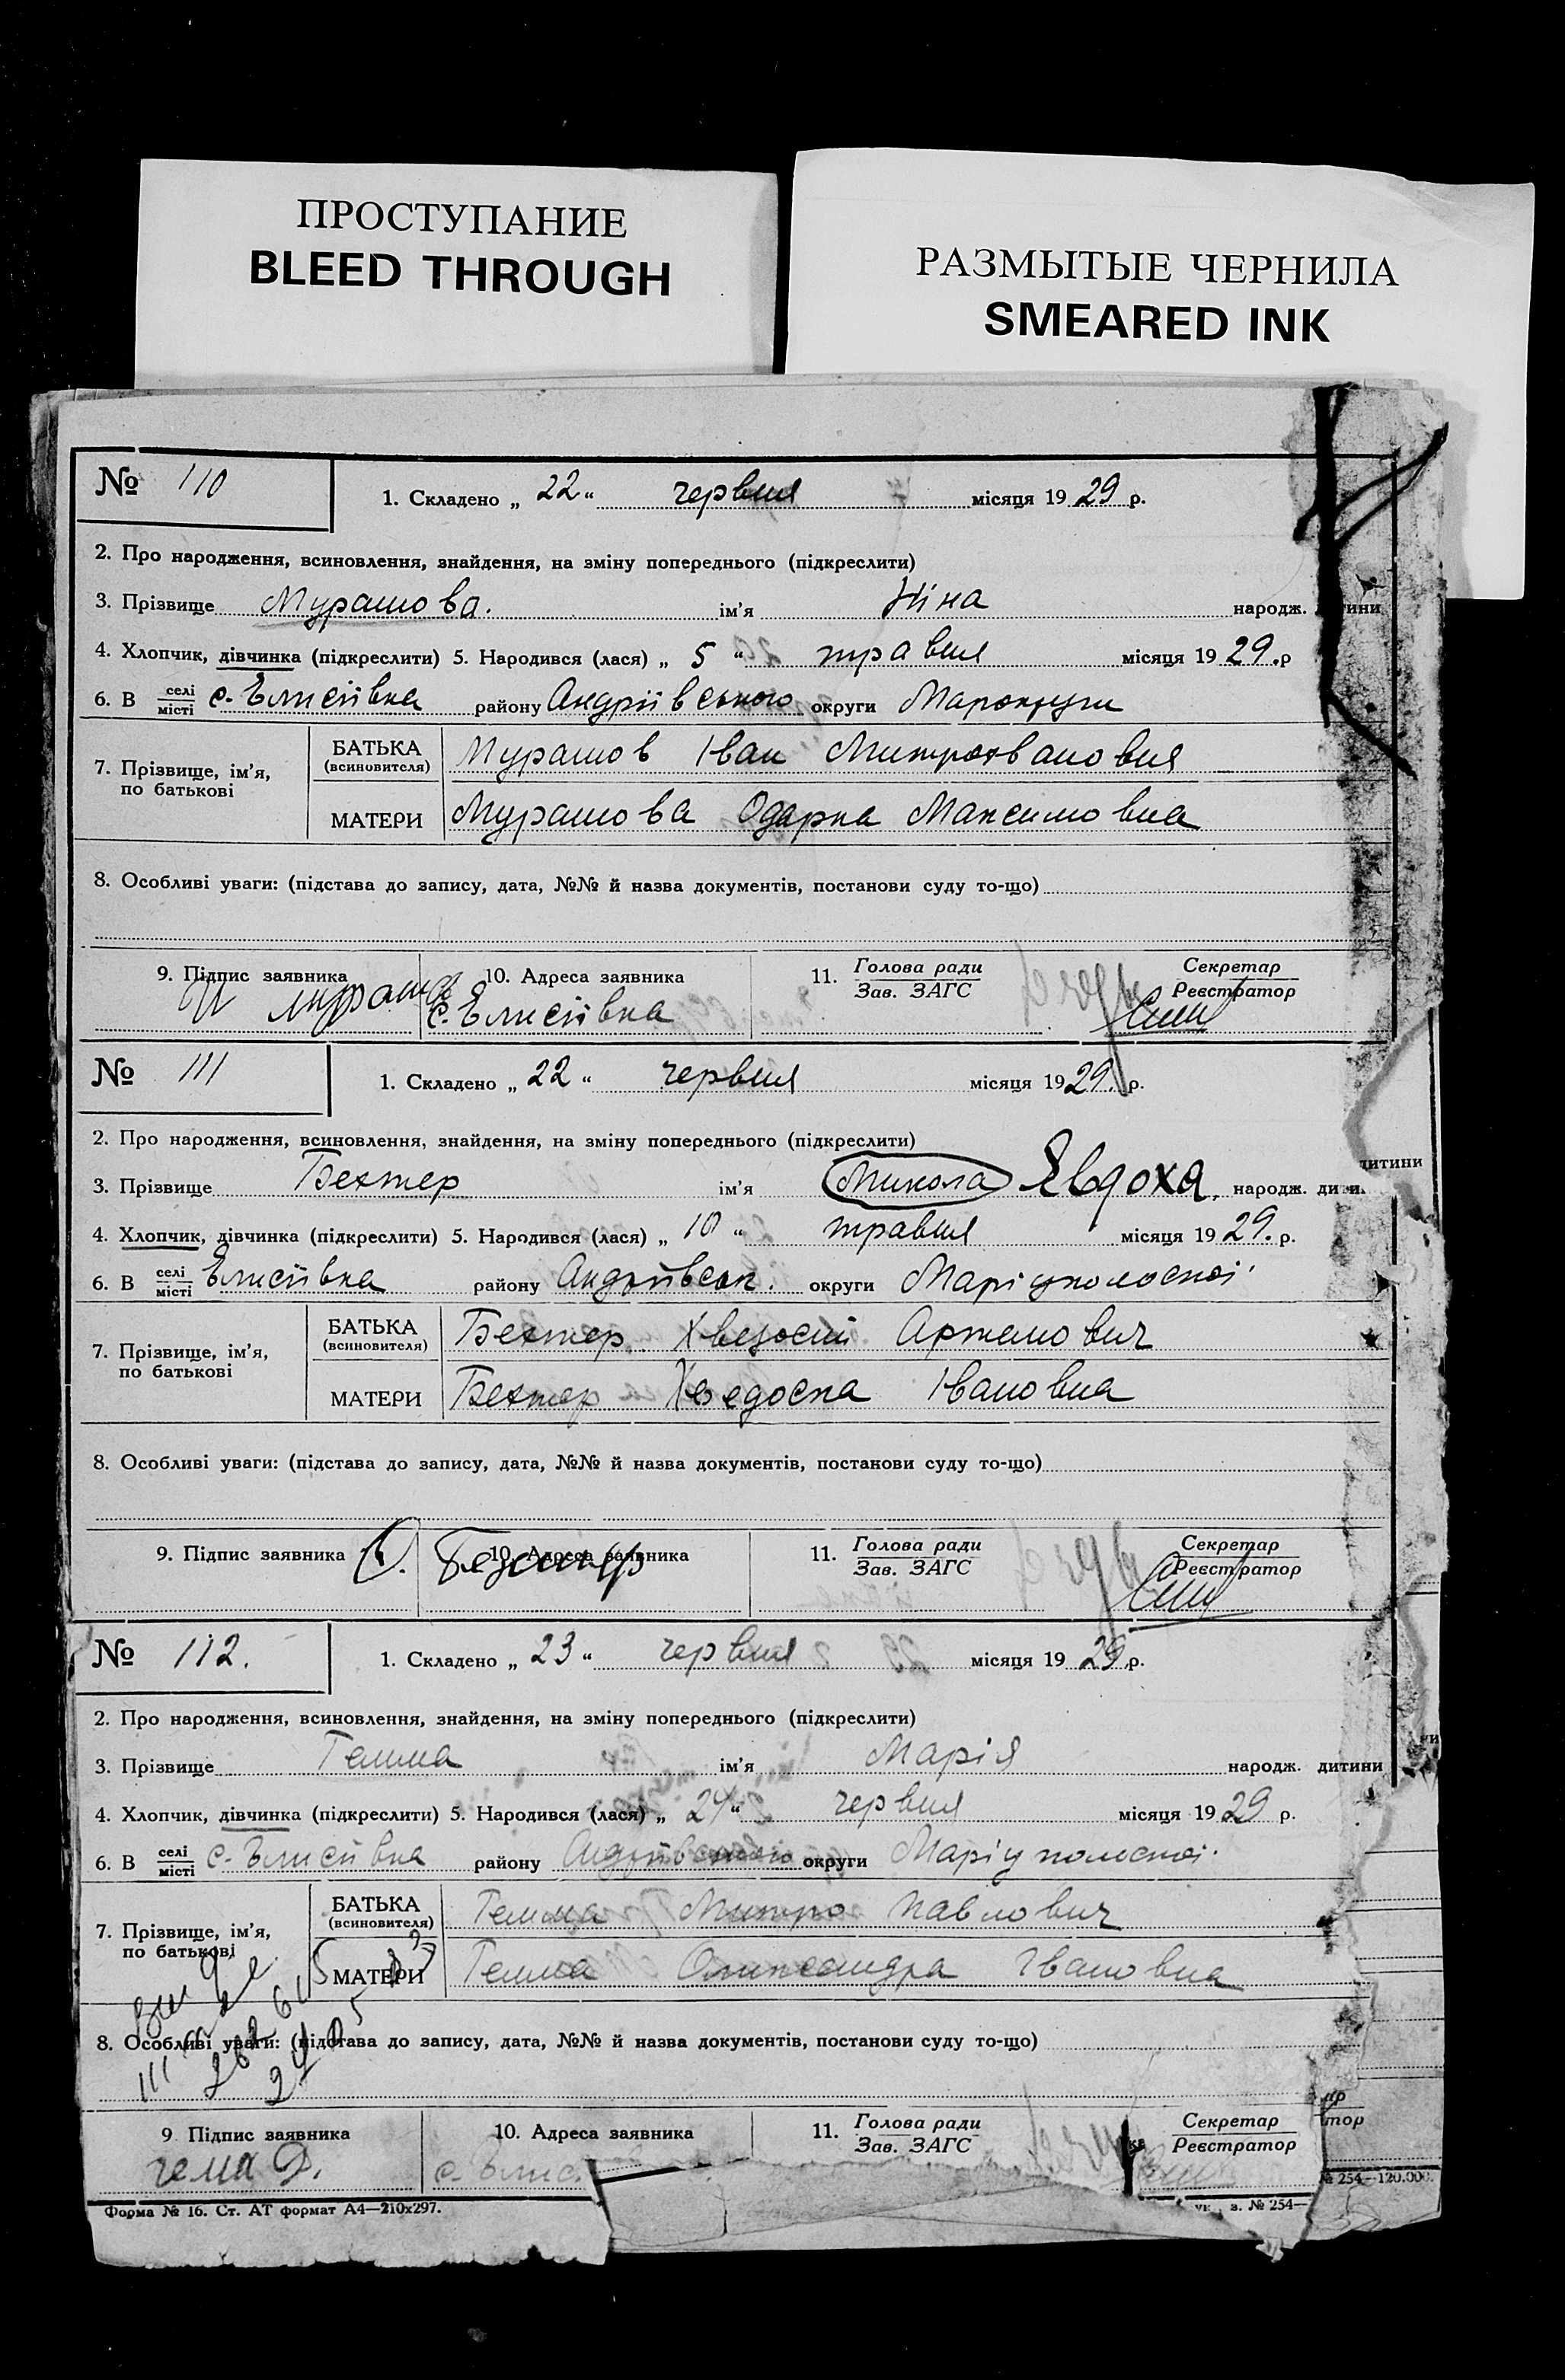 ПРОСТУПАНИЕ
BLEED THROUGH
РАЗМЫТЫЕ ЧЕРНИЛА
SMEARED INK
№ 110
1. Складено „ 22 “ червня місяця 19 29 р.
2. Про народження, всиновлення, знайдення, на зміну попереднього (підкреслити)
3. Прізвище Мурашова. ім’я Ніна народж. дитини
4. Хлопчик, дівчинка (підкреслити) 5. Народився (лася) „ 5 “ травня місяця 19 29. р
6. В селі місті с. Елисіївка району Андріївського округи Марокруги
7. Прізвище, ім’я, по батькові
БАТЬКА (всиновителя) Мурашов Іван Митрохванович
МАТЕРИ Мурашова Одарка Максимовна
8. Особливі уваги: (підстава до запису, дата, №№ й назва документів, постанови суду то-що)
9. Підпис заявника И Мураш
10. Адреса заявника с. Елисіївка
11. Голова ради Зав. ЗАГС
Секретар Реєстратор
№ 111
1. Складено „ 22 “ червня місяця 19 29. р.
2. Про народження, всиновлення, знайдення, на зміну попереднього (підкреслити)
3. Прізвище Бехтер ім’я Микола Явдоха, народж. дитини
4. Хлопчик, дівчинка (підкреслити) 5. Народився (лася) „ 10 “ травня місяця 19 29. р.
6. В селі місті Елисіївка району Андріївськ. округи Маріупольської
7. Прізвище, ім’я, по батькові
БАТЬКА (всиновителя) Бехтер Артемович
МАТЕРИ Бехтер Хведоска Івановна
8. Особливі уваги: (підстава до запису, дата, №№ й назва документів, постанови суду то-що)
9. Підпис заявника
10. Адреса заявника
11. Голова ради Зав. ЗАГС
Секретар Реєстратор
№ 112.
1. Складено „ 23 “ червня місяця 19 29 р.
2. Про народження, всиновлення, знайдення, на зміну попереднього (підкреслити)
3. Прізвище Гемма ім’я Марія народж. дитини
4. Хлопчик, дівчинка (підкреслити) 5. Народився (лася) „ 24 “ червня місяця 19 29 р.
6. В селі місті с. Елисіївка району Андріївського округи Маріупольської.
7. Прізвище, ім’я, по батькові
БАТЬКА (всиновителя) Гемма Митро Павлович
МАТЕРИ Гемма Олександра Івановна
8. Особливі уваги: (підстава до запису, дата, №№ й назва документів, постанови суду то-що)
9 Підпис заявника гема Д.
10. Адреса заявника с. Елис
11. Голова ради Зав. ЗАГС
Секретар Реєстратор
Форма № 16. Ст. АТ формат А4—210х297.
з. № 254—
№ 254—120.000.